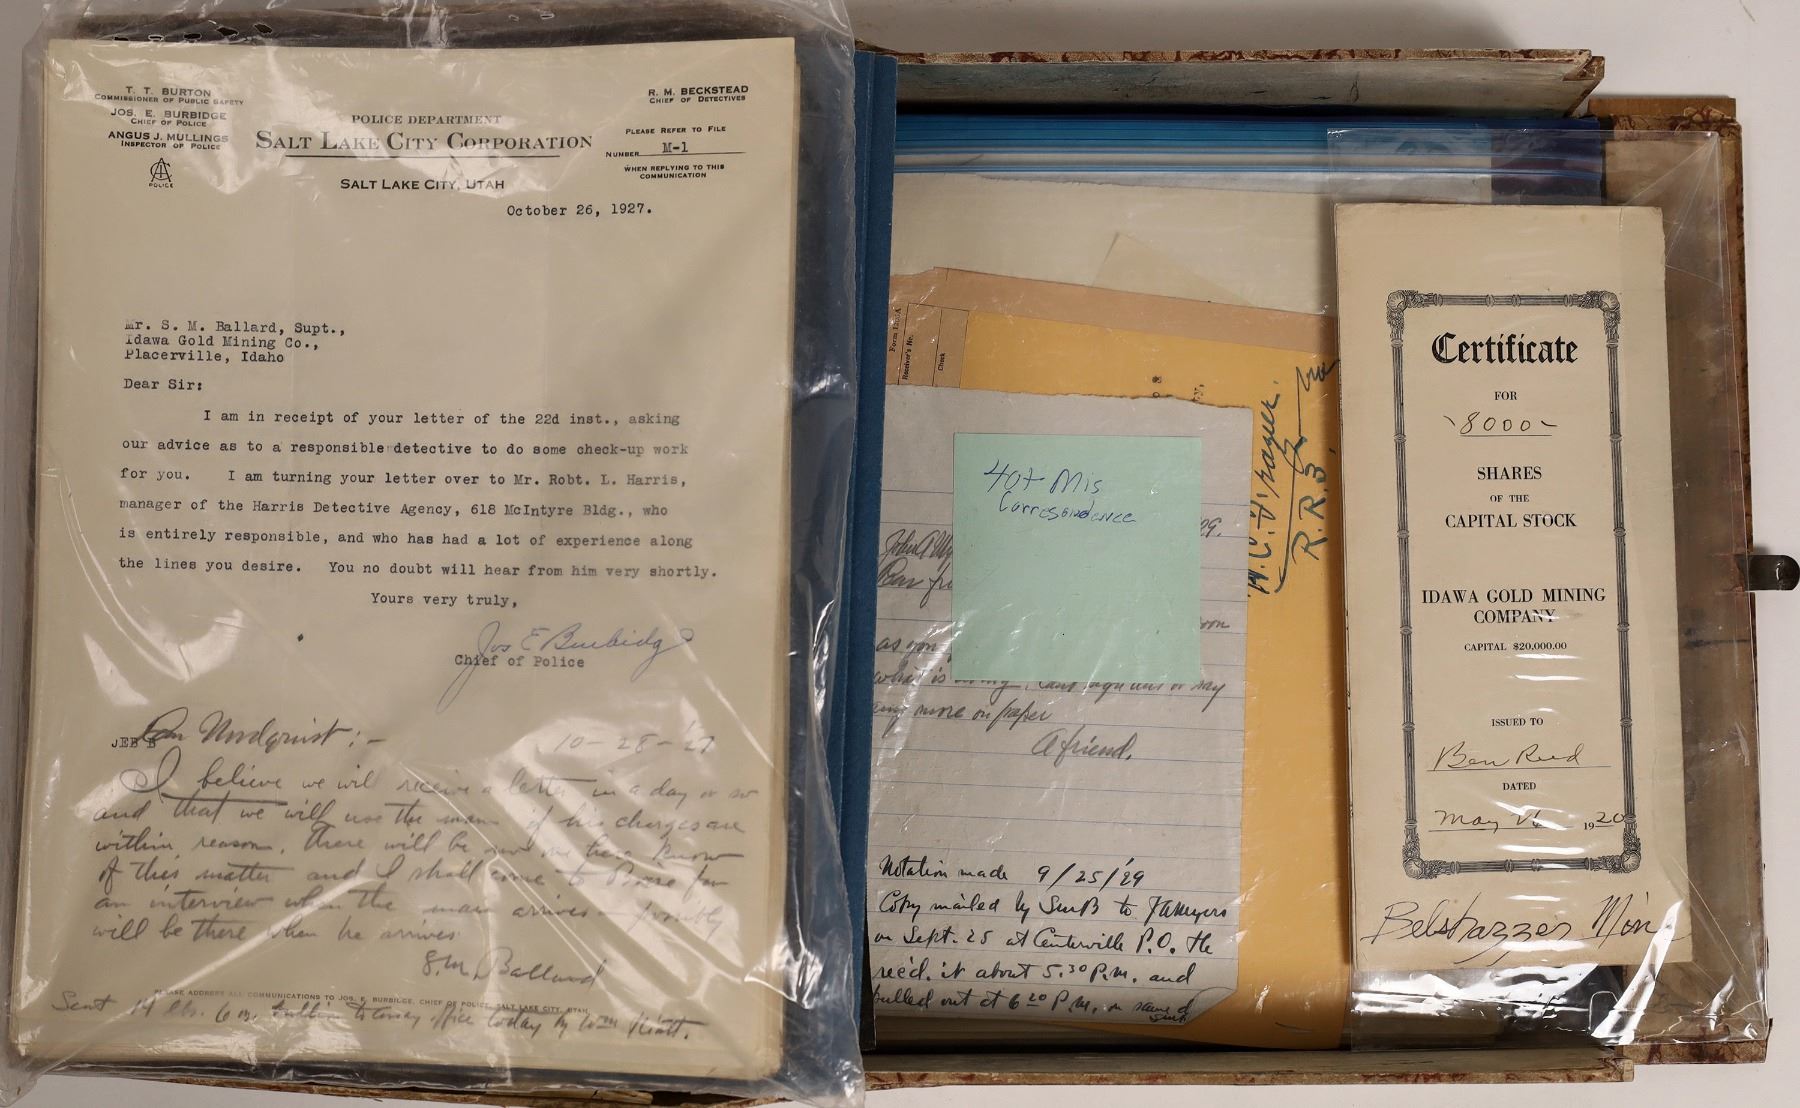 T. T. BURTON
COMMISSIONER OF PUBLIC SAFETY
JOS. E. BURBIDGE
CHIEF OF POLICE
ANGUS J. MULLINGS
INSPECTOR OF POLICE
POLICE
POLICE DEPARTMENT
SALT LAKE CITY CORPORATION
SALT LAKE CITY, UTAH
R. M. BECKSTEAD
CHIEF OF DETECTIVES
PLEASE REFER TO FILE
NUMBER M-1
WHEN REPLYING TO THIS
COMMUNICATION
October 26, 1927.
Mr. S. M. Ballard, Supt.,
Idawa Gold Mining Co.,
Placerville, Idaho
Dear Sir:
I am in receipt of your letter of the 22d inst., asking
our advice as to a responsible detective to do some check-up work
for you. I am turning your letter over to Mr. Robt. L. Harris,
manager of the Harris Detective Agency, 618 McIntyre Bldg., who
is entirely responsible, and who has had a lot of experience along
the lines you desire. You no doubt will hear from him very shortly.
Yours very truly,
Jos E Burbidge
Chief of Police
JEB B
Nordquist:-
10-28-27
I believe we will receive a letter in a day or so
and that we will use the man if his charges are
within reason. There will be no one here know
of this matter and I shall come to Boise for
an interview when the man arrives - possibly
will be there when he arrives
S.M. Ballard
PLEASE ADDRESS ALL COMMUNICATIONS TO JOS. E. BURBIDGE, CHIEF OF POLICE, SALT LAKE CITY, UTAH.
Sent 14 lbs. 6 oz. bullion to assay office today by
Form 1330A
Receiver's No.
Check
R.R.B.
40+ Mis
Correspondence
29.
John A
as you
what is
any more on paper
A friend.
Notation made 9/25/29
Copy mailed by SMB to JAMyers
on Sept. 25 at Centerville P.O. He
rec'd. it about 5.30 P.M. and
pulled out at 6 20 P.M.
Certificate
FOR
-8000-
SHARES
OF THE
CAPITAL STOCK
IDAWA GOLD MINING
COMPANY
CAPITAL $20,000.00
ISSUED TO
Ben Reed
DATED
May 1920
Belshazzer Mine